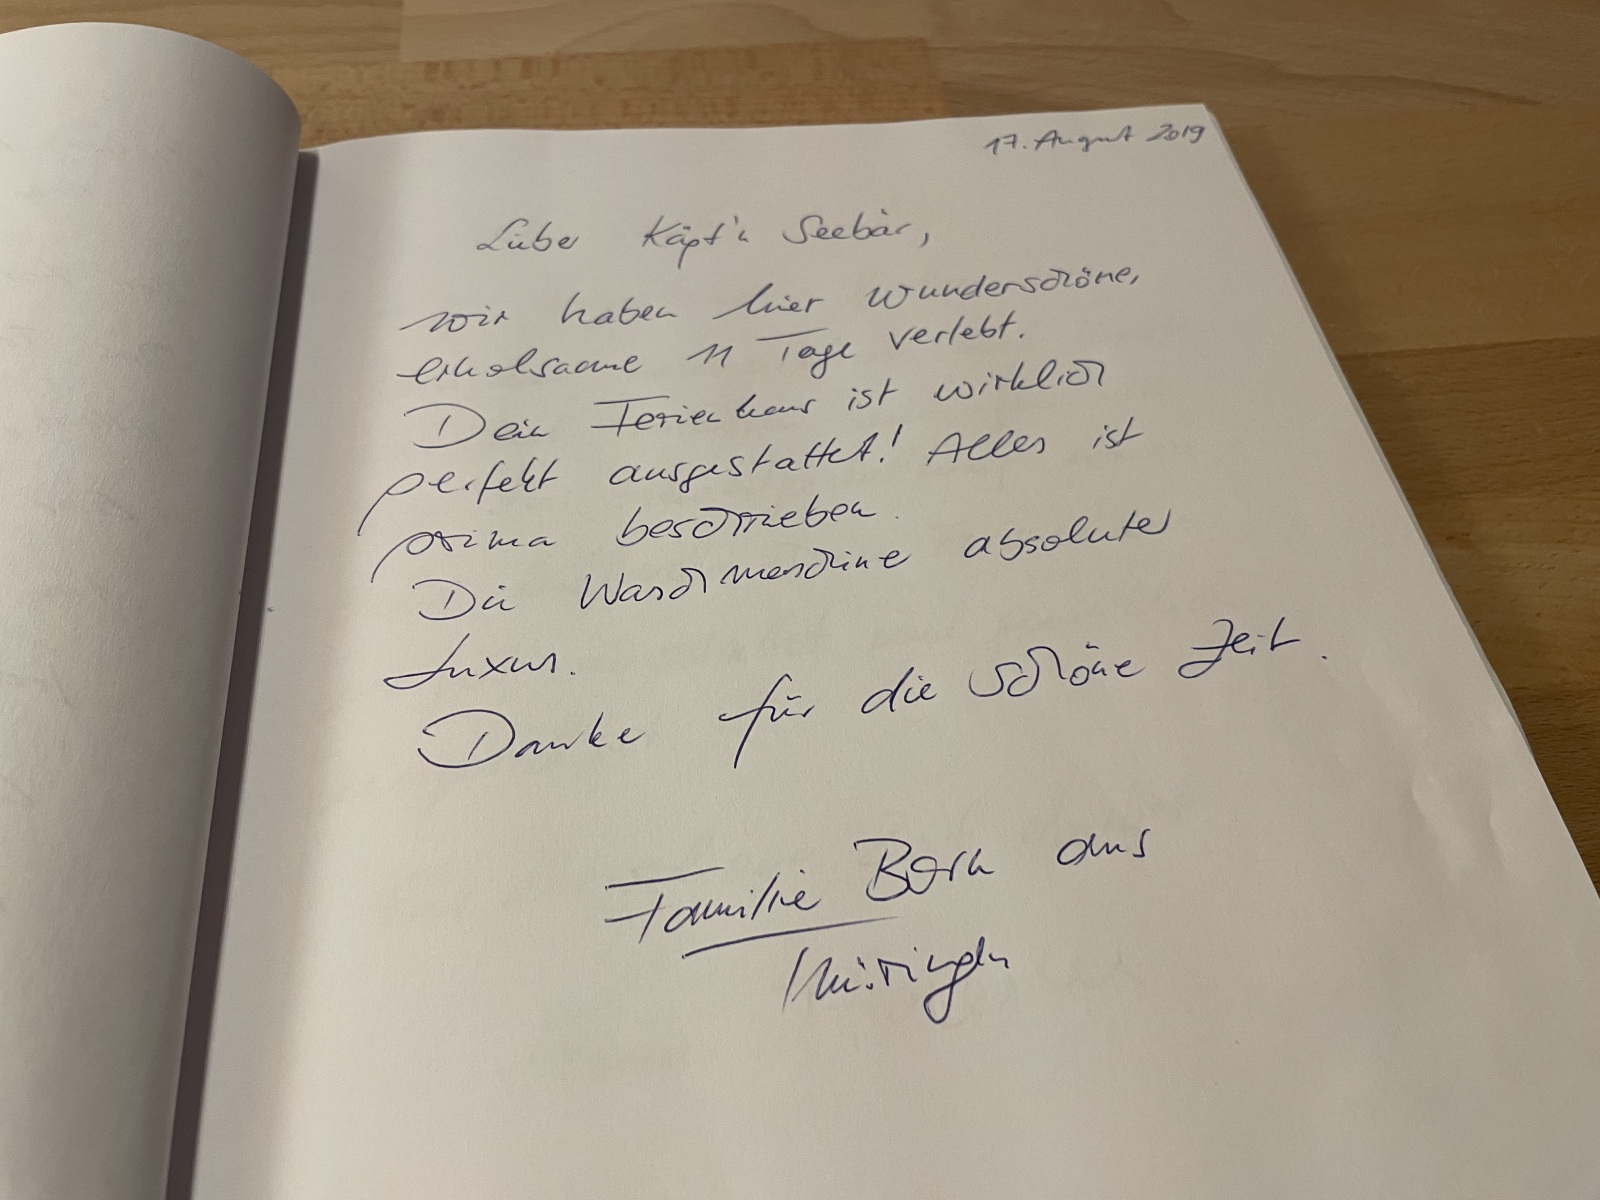 17. August 2019
Lieber Käpt'n Seebär,
wir haben hier wunderschöne,
erholsame 11 Tage verlebt.
Dein Ferienhaus ist wirklich
perfekt ausgestattet! Alles ist
prima beschrieben.
Die Waschmaschine absoluter
Luxus.
Danke für die schöne Zeit.
Familie Born aus
Thüringen